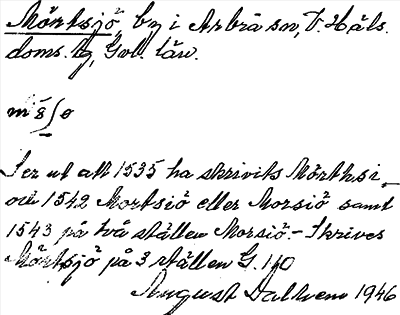 Mörtsjö, by i Arbrå sn, V. Häls.
doms.bg, Gvl. län.
m ö ʃ ø
Ser ut att 1535 ha skrivits Mörthsi,
och 1542 Mortsiö eller Morsiö samt
1543 på två ställen Morsiö. - Skrives
Mörtsjö på 3 ställen G. 110
August Dalhem 1946